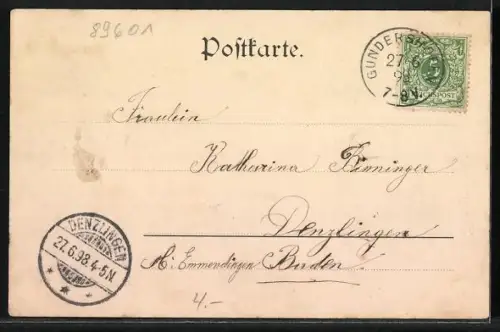 89601
Postkarte.
GUNDERSH
27.6
9
7-8V.
5
POST
Fräulein
Katharina Binninger
Denzlingen
A: Emmendingen Baden
DENZLINGEN
27.6.98.4-5N
4.-